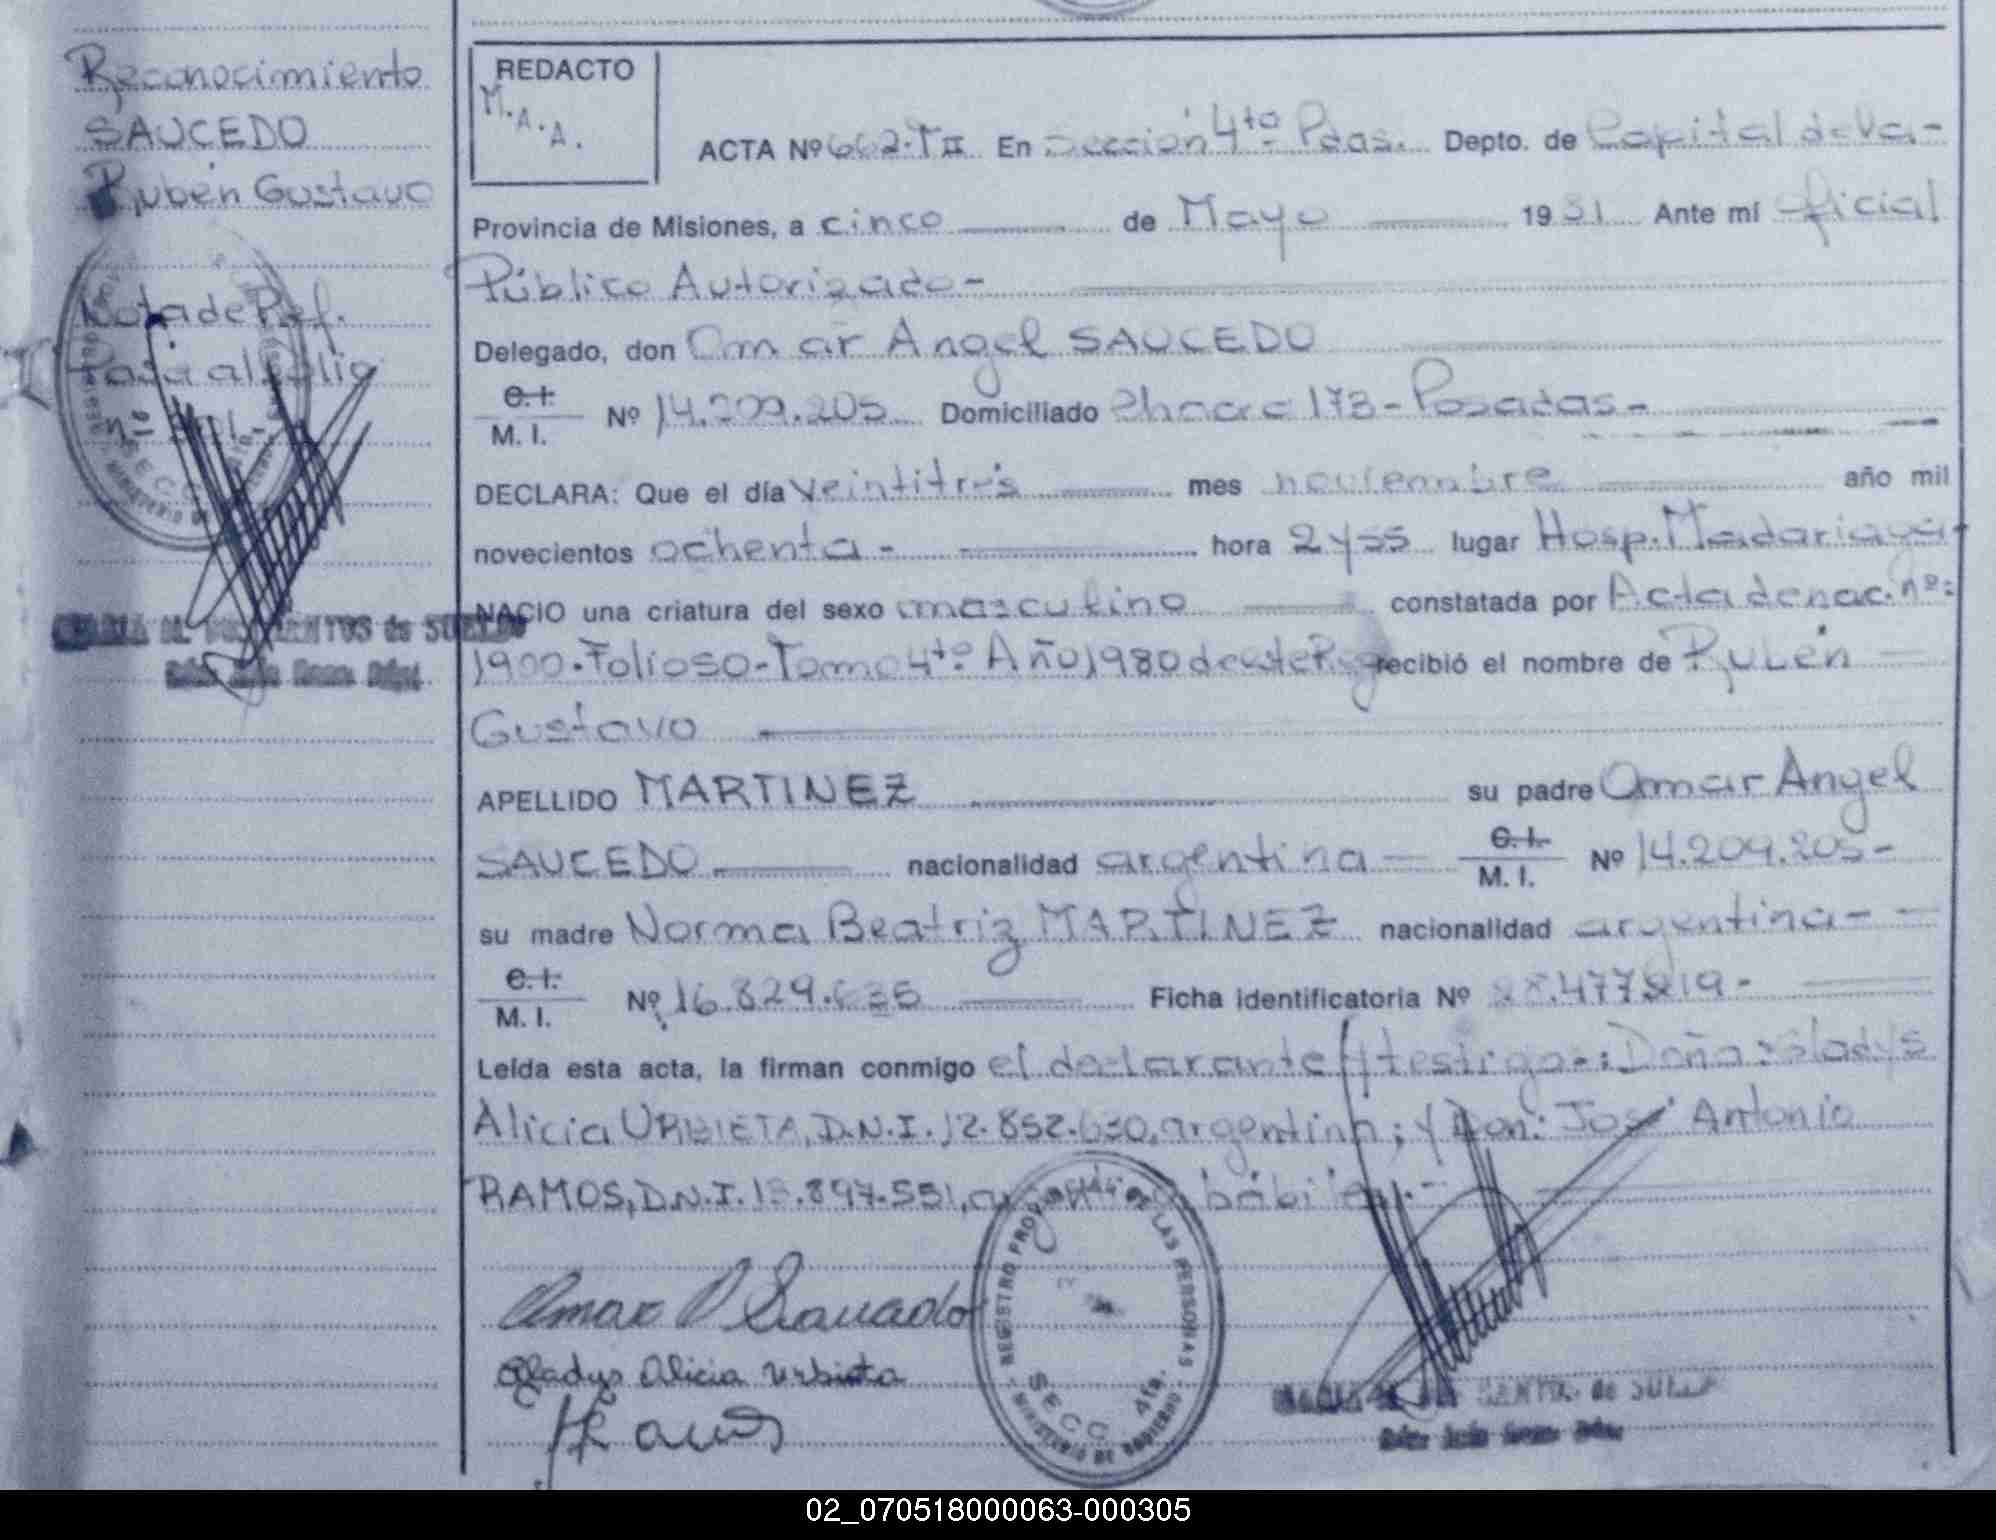 Reconocimiento
SAUCEDO
Rubén Gustavo
Nota de Ref.
Pasa al folio
nº
REDACTO
M.A.A.
ACTA Nº 662.TII En Sección 4ta. Pdas. Depto. de Capital de la-
Provincia de Misiones, a cinco de Mayo 1981 Ante mí oficial
Público Autorizado-
Delegado, don Omar Angel SAUCEDO
C.I.
M. I. Nº 14.209.205 Domiciliado Chacra 173-Posadas-
DECLARA: Que el día veintitrés mes noviembre año mil
novecientos ochenta- hora 2 y 55 lugar Hosp. Madariaga-
NACIO una criatura del sexo masculino constatada por Acta de nac. nº:
1900-Folio 50-Tomo 4to. Año 1980 de este Reg recibió el nombre de Rubén
Gustavo
APELLIDO MARTINEZ su padre Omar Angel
SAUCEDO nacionalidad argentina C.I.
M. I. Nº 14.209.205-
su madre Norma Beatriz MARTINEZ nacionalidad argentina-
C.I.
M. I. Nº 16.829.635 Ficha identificatoria Nº
Leída esta acta, la firman conmigo el declarante y testigo-: Doña: Gladys
Alicia URBIETA, D.N.I. 12.852.630, argentina; y Don: José Antonio
RAMOS, D.N.I. 13.897.551, hábiles.-
Omar A Saucedo
Gladys Alicia Urbieta
REGISTRO PROVINCIAL DE LAS PERSONAS
SECC. 4ta.
MINISTERIO DE GOBIERNO
02_070518000063-000305